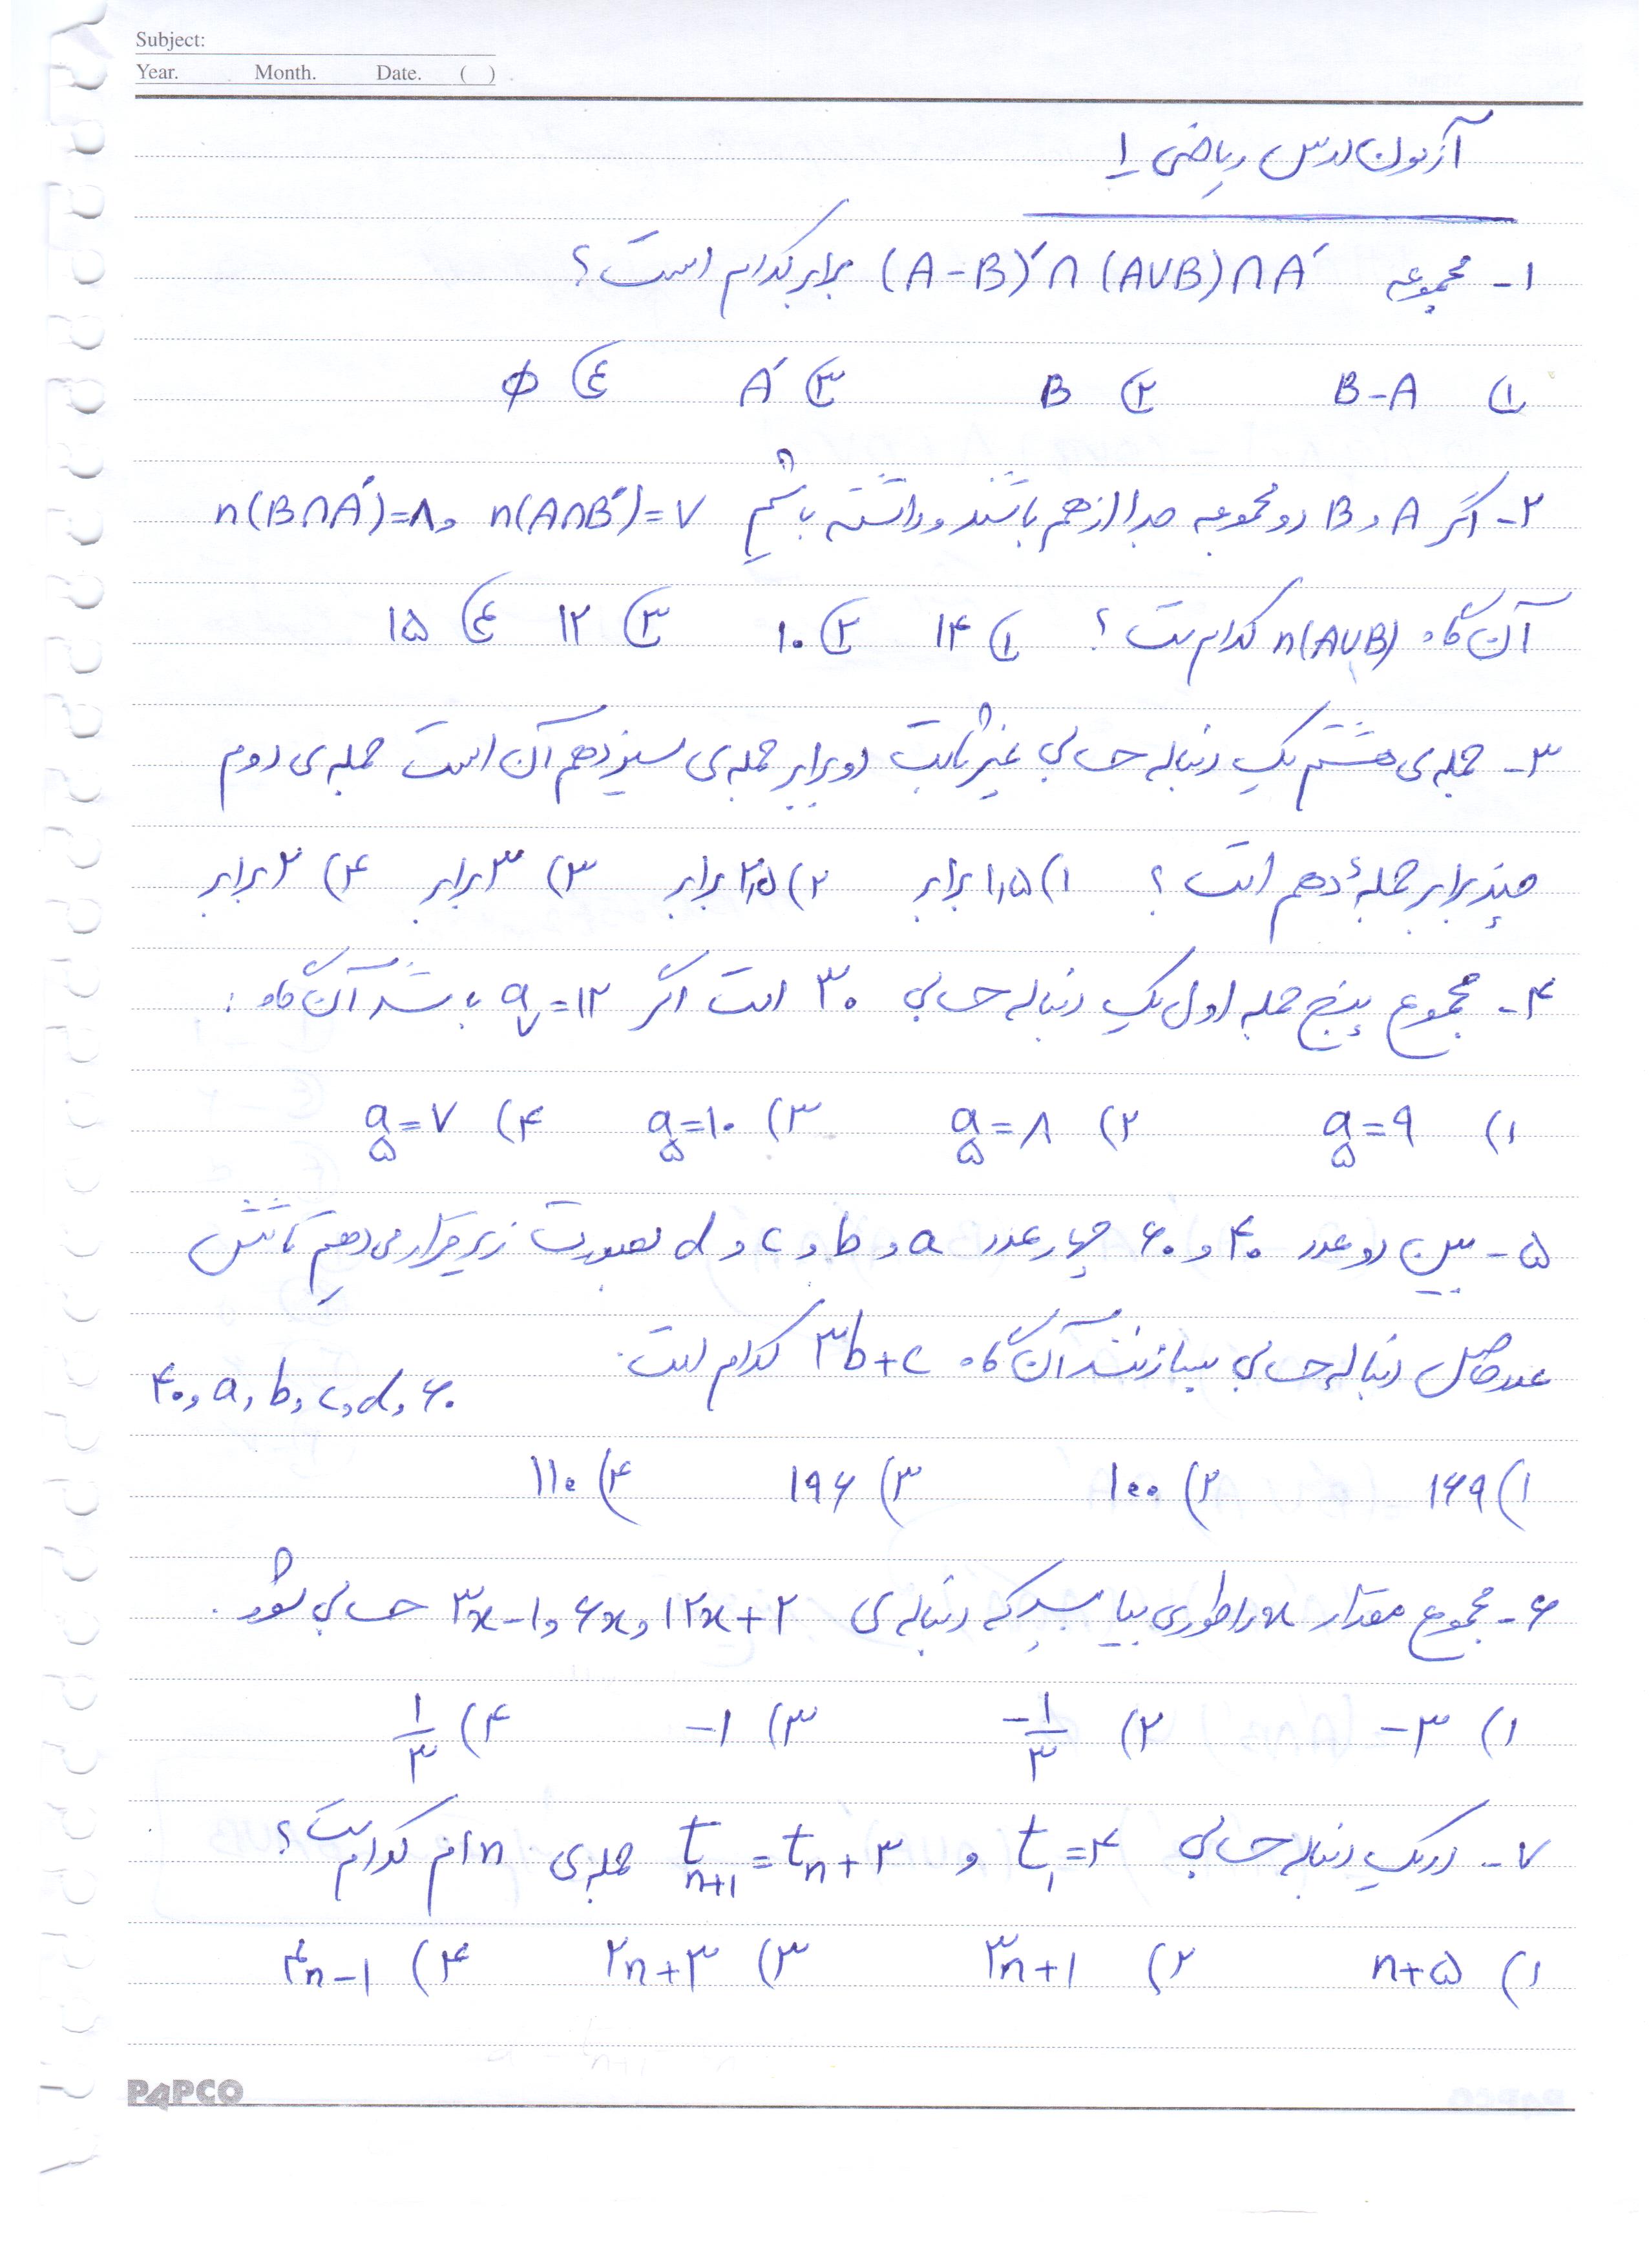 Subject:
Year. Month. Date. ( )
آزمون درس ریاضی ۱
۱- مجموعه (A-B)′∩(A∪B)∩A′ برابر کدام است؟
۱) B-A ۲) B ۳) A′ ۴) φ
۲- اگر A و B دو مجموعه جدا از هم باشند و داشته باشیم n(A∩B′)=۷ و n(B∩A′)=۸
آن گاه n(A∪B) کدام است؟ ۱) ۱۴ ۲) ۱۰ ۳) ۱۲ ۴) ۱۵
۳- جمله ی هشتم یک دنباله حسابی غیر ثابت دو برابر جمله ی سیزدهم آن است جمله ی دوم
چند برابر جملهٔ دهم است؟ ۱) ۱,۵ برابر ۲) ۲,۵ برابر ۳) ۳ برابر ۴) ۲ برابر
۴- مجموع پنج جمله اول یک دنباله حسابی ۳۰ است اگر a۷=۱۲ باشد آن گاه:
۱) a۵=۹ ۲) a۵=۸ ۳) a۵=۱۰ ۴) a۵=۷
۵- بین دو عدد ۴۰ و ۶۰ چهار عدد a و b و c و d بصورت زیر قرار می دهیم تا شش
عدد حاصل دنباله حسابی بسازند آن گاه ۳b+c کدام است.
۴۰, a, b, c, d, ۶۰
۱) ۱۶۹ ۲) ۱۰۰ ۳) ۱۹۶ ۴) ۱۱۰
۶- مجموع مقدار x را طوری بیابید که دنباله ی ۳x-۱, ۶x, ۱۲x+۲ حسابی شود.
۱) -۳ ۲) -۱/۳ ۳) -۱ ۴) ۱/۳
۷- در یک دنباله حسابی t۱=۴ و tn+۱=tn+۳ جمله ی n ام کدام است؟
۱) n+۵ ۲) ۳n+۱ ۳) ۲n+۳ ۴) ۴n-۱
PAPCO